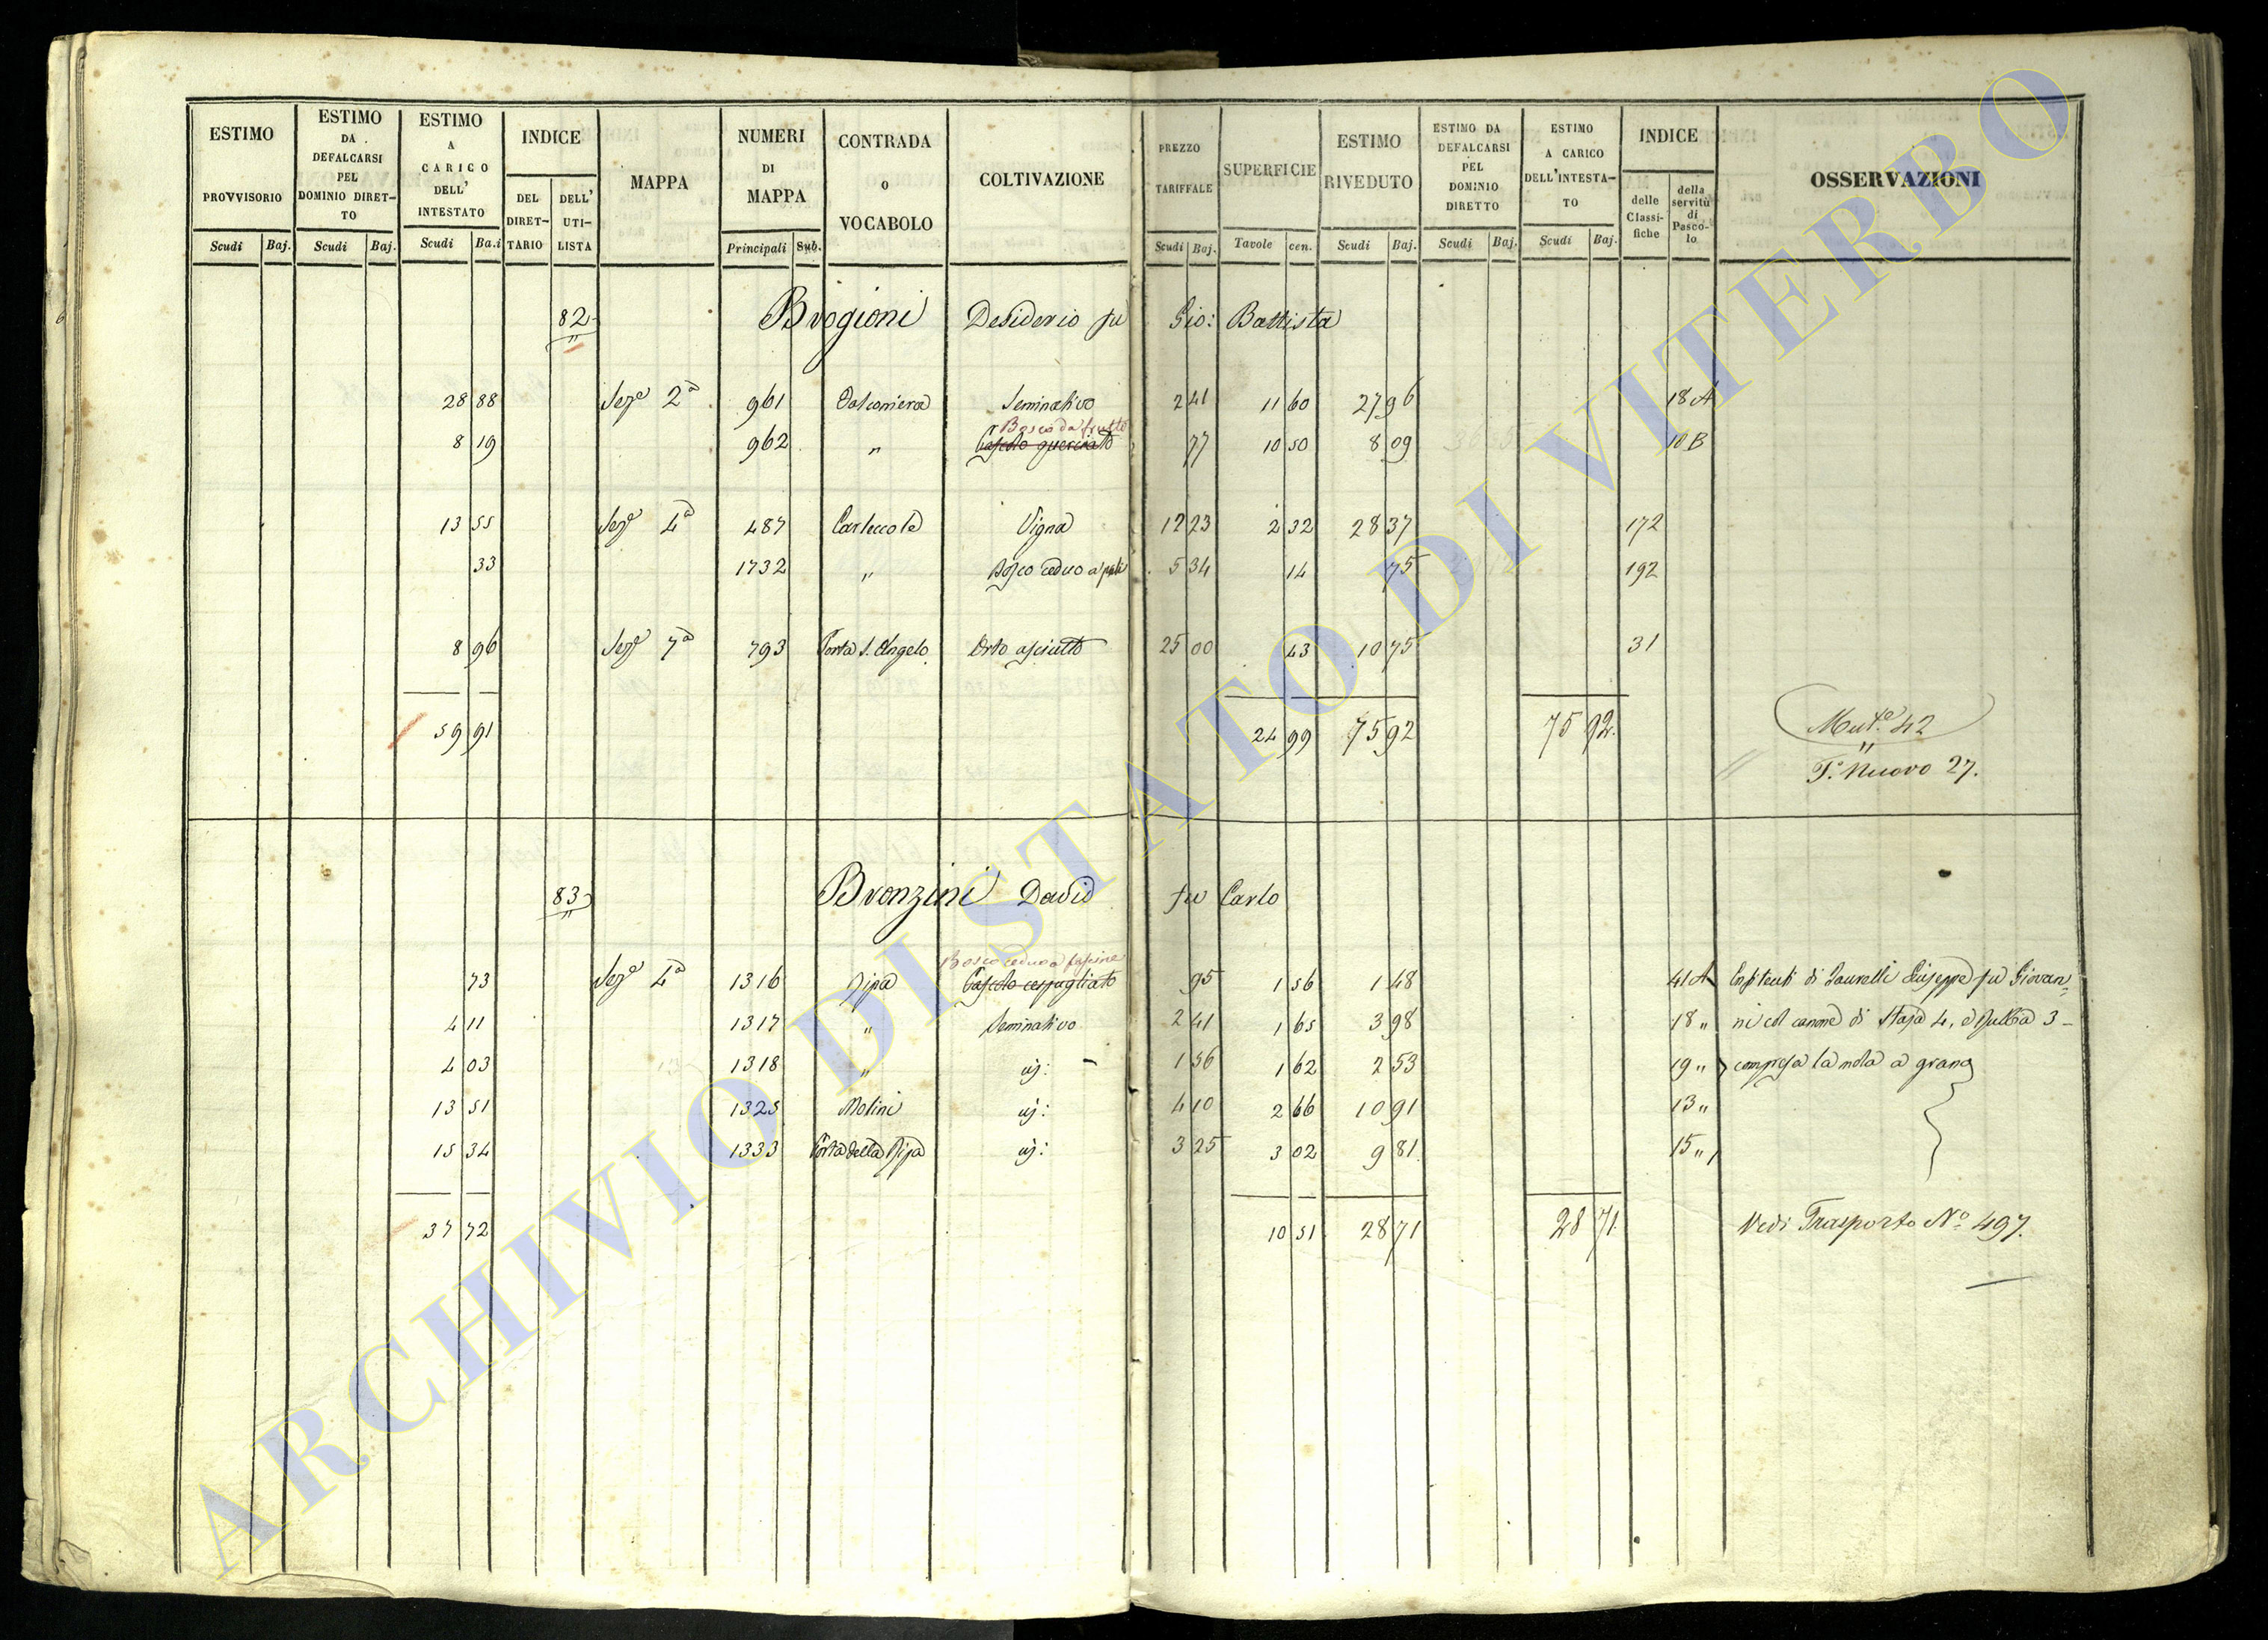 ESTIMO PROVVISORIO
Scudi Baj.
ESTIMO DA DEFALCARSI PEL DOMINIO DIRET-TO
Scudi Baj.
ESTIMO A CARICO DELL' INTESTATO
Scudi Ba.i
INDICE
DEL DIRET-TARIO
DELL' UTI-LISTA
MAPPA
NUMERI DI MAPPA
Principali Sub.
CONTRADA O VOCABOLO
COLTIVAZIONE
PREZZO TARIFFALE
Scudi Baj.
SUPERFICIE
Tavole cen.
ESTIMO RIVEDUTO
Scudi Baj.
ESTIMO DA DEFALCARSI PEL DOMINIO DIRETTO
Scudi Baj.
ESTIMO A CARICO DELL'INTESTA-TO
Scudi Baj.
INDICE
delle Classi-fiche
della servitù di Pasco-lo
OSSERVAZIONI
82 Brogioni Desiderio fu Gio: Battista
28 88 Sez.e 2a 961 Seminativo 2 41 11 60 27 96 18 A
Bosco da frutto
8 19 962 " Pascolo querciato 77 10 50 8 09 10 B
13 55 Sez.e 4a 487 Carleccole Vigna 12 23 2 32 28 37 172
33 1732 " Bosco ceduo a pali 5 34 14 75 192
8 96 Sez.e 7a 793 Porta S. Angelo Orto asciutto 25 00 43 10 75 31
59 91 24 99 75 92 75 92.
Mut.e 42
"
T.o Nuovo 27.
83 Bronzini David fu Carlo
Bosco ceduo a fascine
73 Sez.e 4a 1316 Ripa Pascolo cespugliato 95 1 56 1 48 41 A Enfiteuti di Laurelli Giuseppe fu Giovan=
4 11 1317 " Seminativo 2 41 1 65 3 98 18 " ni col canone di Staja 4, e 3 -
4 03 1318 " id: - 1 56 1 62 2 53 19 " compresa la nota a grano
13 51 1325 Molini id: 4 10 2 66 10 91 13 "
15 34 1333 Porta della Ripa id: 3 25 3 02 9 81 15 "
37 72 10 51 28 71 28 71 Vedi Trasporto No 497.
ARCHIVIO DI STATO DI VITERBO